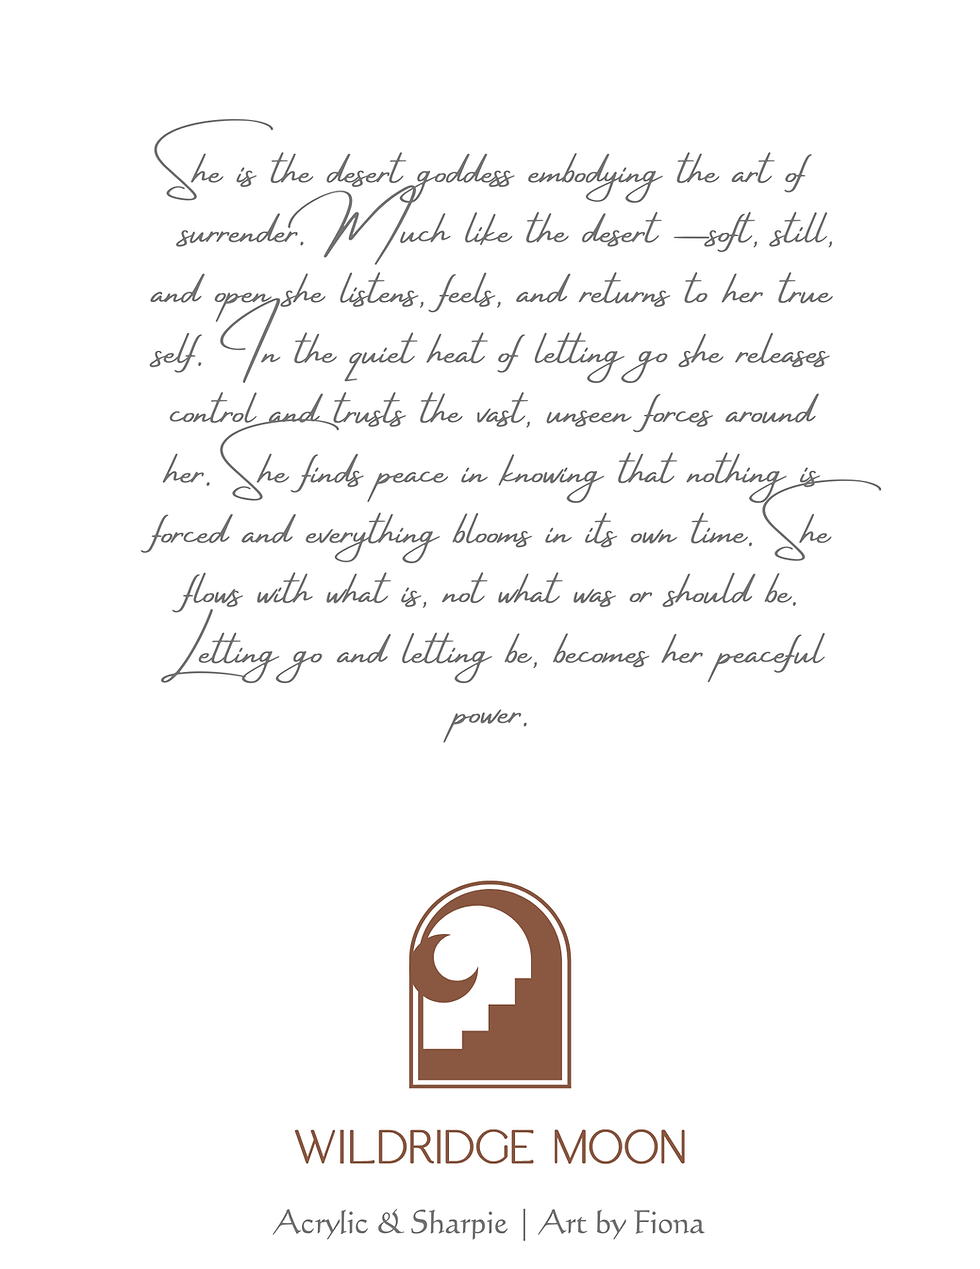 She is the desert goddess embodying the art of
surrender. Much like the desert —soft, still,
and open, she listens, feels, and returns to her true
self. In the quiet heat of letting go she releases
control and trusts the vast, unseen forces around
her. She finds peace in knowing that nothing is
forced and everything blooms in its own time. She
flows with what is, not what was or should be.
Letting go and letting be, becomes her peaceful
power.
WILDRIDGE MOON
Acrylic & Sharpie | Art by Fiona